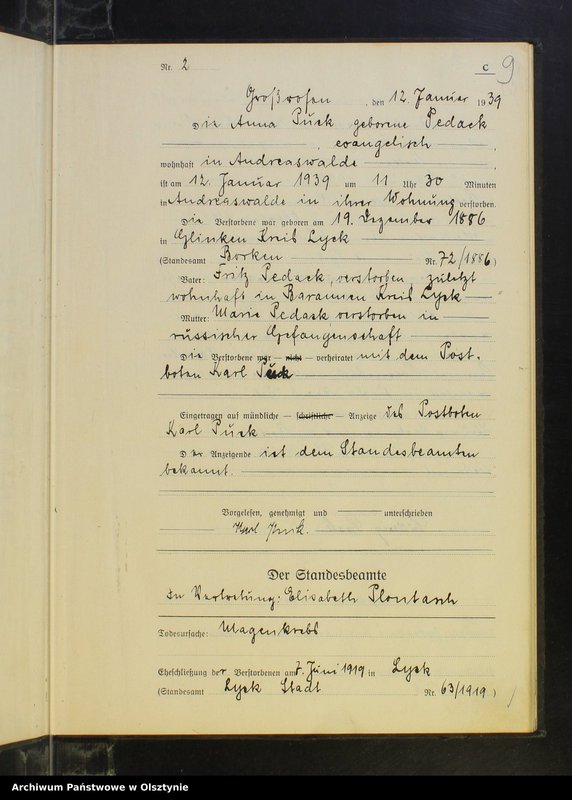 Nr. 2 C 9
Großrosen, den 12. Januar 1939
Die Anna Puck geborene Pedack
, evangelisch,
wohnhaft in Andreaswalde
ist am 12. Januar 1939 um 11 Uhr 30 Minuten
in Andreaswalde in ihrer Wohnung verstorben.
Die Verstorbene war geboren am 19. Dezember 1886
in Glinken Kreis Lyck
(Standesamt Borken Nr. 72/1886)
Vater: Fritz Pedack, verstorben zuletzt
wohnhaft in Barannen Kreis Lyck
Mutter: Marie Pedack verstorben in
russischer Gefangenschaft
Die Verstorbene war – nicht – verheiratet mit dem Post-
boten Karl Puck
Eingetragen auf mündliche – schriftliche – Anzeige des Postboten
Karl Puck
Der Anzeigende ist dem Standesbeamten
bekannt.
Vorgelesen, genehmigt und unterschrieben
Karl Puck.
Der Standesbeamte
In Vertretung: Elisabeth Plontasch
Todesursache: Magenkrebs
Eheschließung der Verstorbenen am 7. Juni 1919 in Lyck
(Standesamt Lyck Stadt Nr. 63/1919)
Archiwum Państwowe w Olsztynie